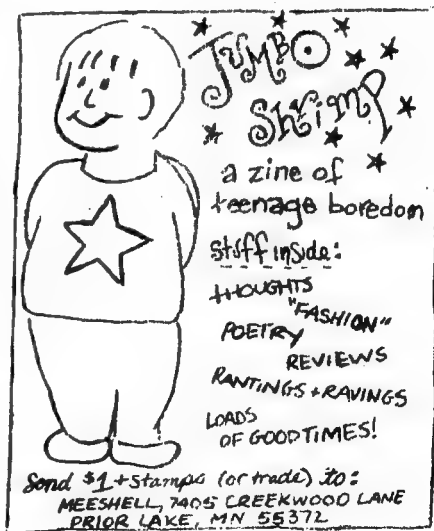 JUMBO
Shrimp
a zine of
teenage boredom
stuff inside:
THOUGHTS
"FASHION"
POETRY
REVIEWS
RANTINGS + RAVINGS
LOADS
OF GOOD TIMES!
Send $1 + stamps (or trade) to:
MEESHELL, 7405 CREEKWOOD LANE
PRIOR LAKE, MN 55372